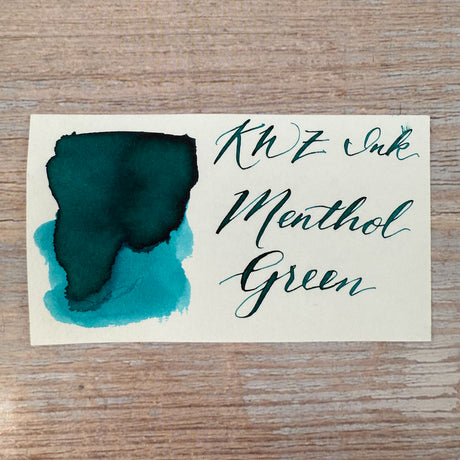 KWZ Ink
Menthol
Green